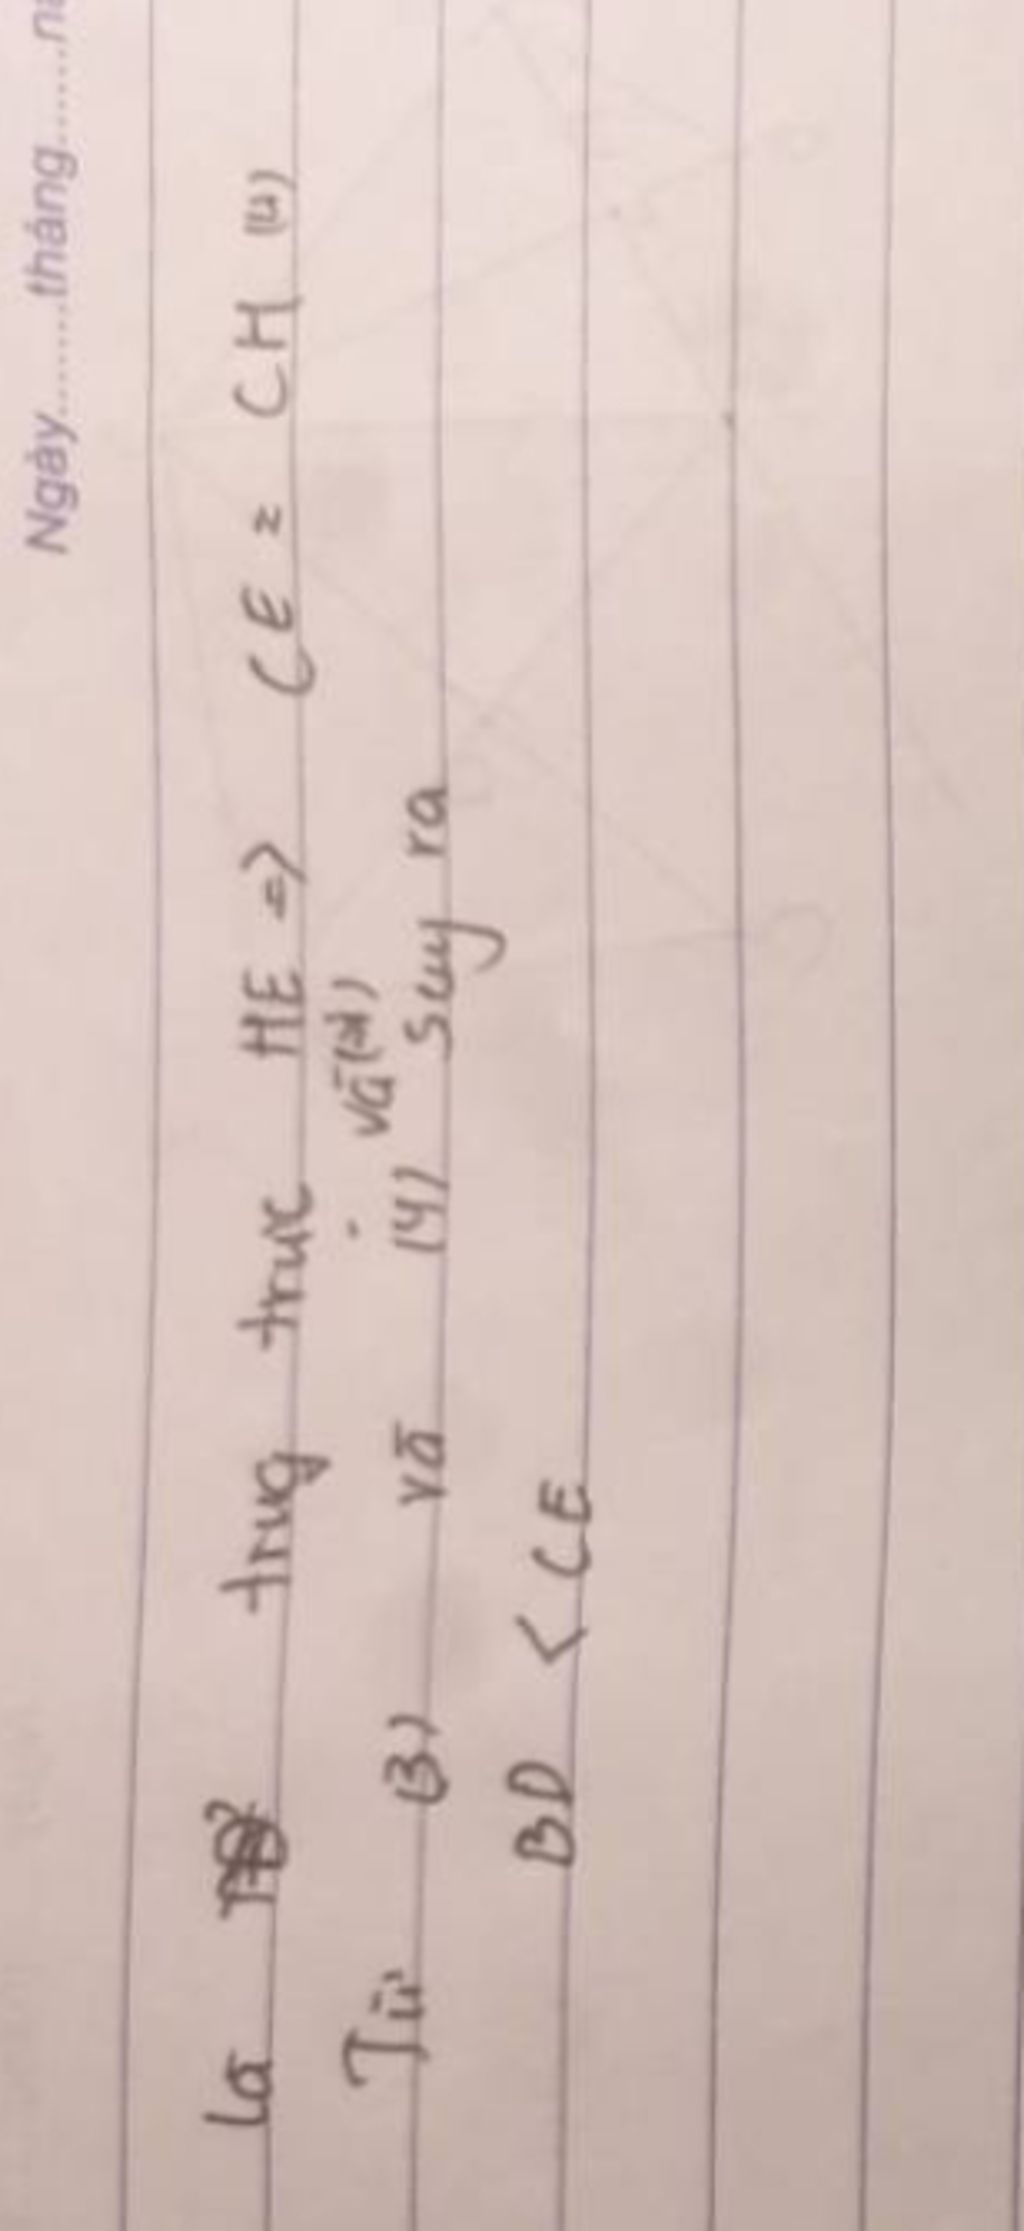 Ngày........tháng........nă
là trung trực HE => CE = CH (4)
và (2)
Từ (3) và (4) suy ra
BD < CE